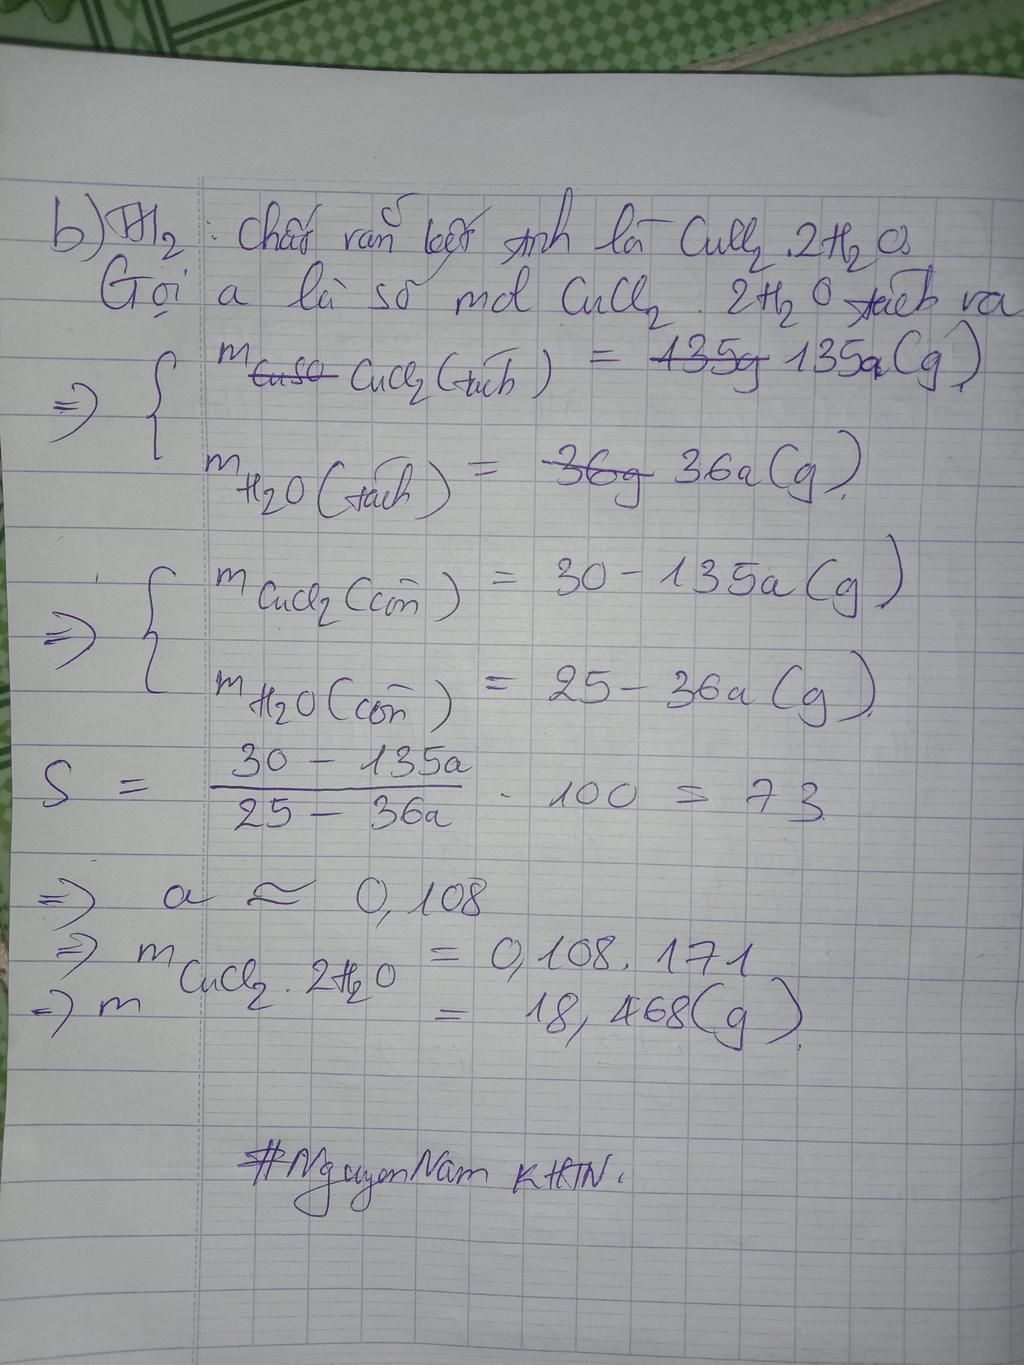 b) TH₂ : Chất rắn kết tinh là CuCl₂.2H₂O
Gọi a là số mol CuCl₂.2H₂O tách ra
=> { m CuSO CuCl₂ (tách) = 135g 135a (g)
m H₂O (tách) = 36g 36a (g).
=> { m CuCl₂ (còn) = 30 - 135a (g)
m H₂O (còn) = 25 - 36a (g).
S = (30 - 135a)/(25 - 36a) . 100 = 73
=> a ≈ 0,108
=> m CuCl₂.2H₂O = 0,108.171
=> m = 18,468 (g).
#NguyenNam KHTN.